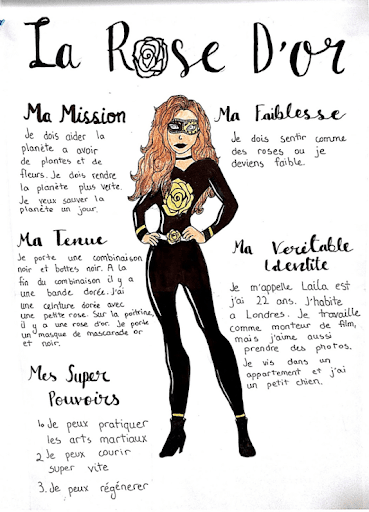 La Rose D'or
Ma Mission
Je dois aider la
planète a avoir
de plantes et de
fleurs. Je dois rendre
la planète plus verte.
Je veux sauver la
planète un jour.
Ma Tenue
Je porte une combinaison
noir et bottes noir. A la
fin du combinaison il y a
une bande dorée. J'ai
une ceinture dorée avec
une petite rose. Sur la poitrine,
il y a une rose d'or. Je porte
un masque de mascarade or
et noir.
Mes Super
Pouvoirs
1. Je peux pratiquer
les arts martiaux
2 Je peux courir
super vite
3. Je peux régénerer
Ma Faiblesse
Je dois sentir comme
des roses ou je
deviens faible.
Ma Veritable
Identite
Je m'appelle Laila est
j'ai 22 ans. J'habite
a Londres. Je travaille
comme monteur de film,
mais j'aime aussi
prendre des photos.
Je vis dans un
appartement et j'ai
un petit chien.